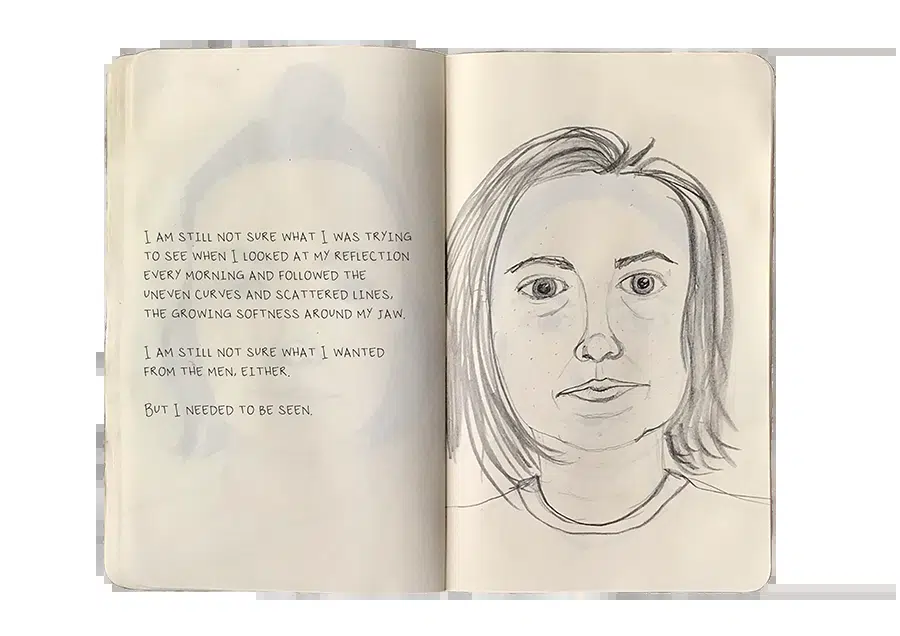 I AM STILL NOT SURE WHAT I WAS TRYING
TO SEE WHEN I LOOKED AT MY REFLECTION
EVERY MORNING AND FOLLOWED THE
UNEVEN CURVES AND SCATTERED LINES,
THE GROWING SOFTNESS AROUND MY JAW.
I AM STILL NOT SURE WHAT I WANTED
FROM THE MEN, EITHER.
BUT I NEEDED TO BE SEEN.